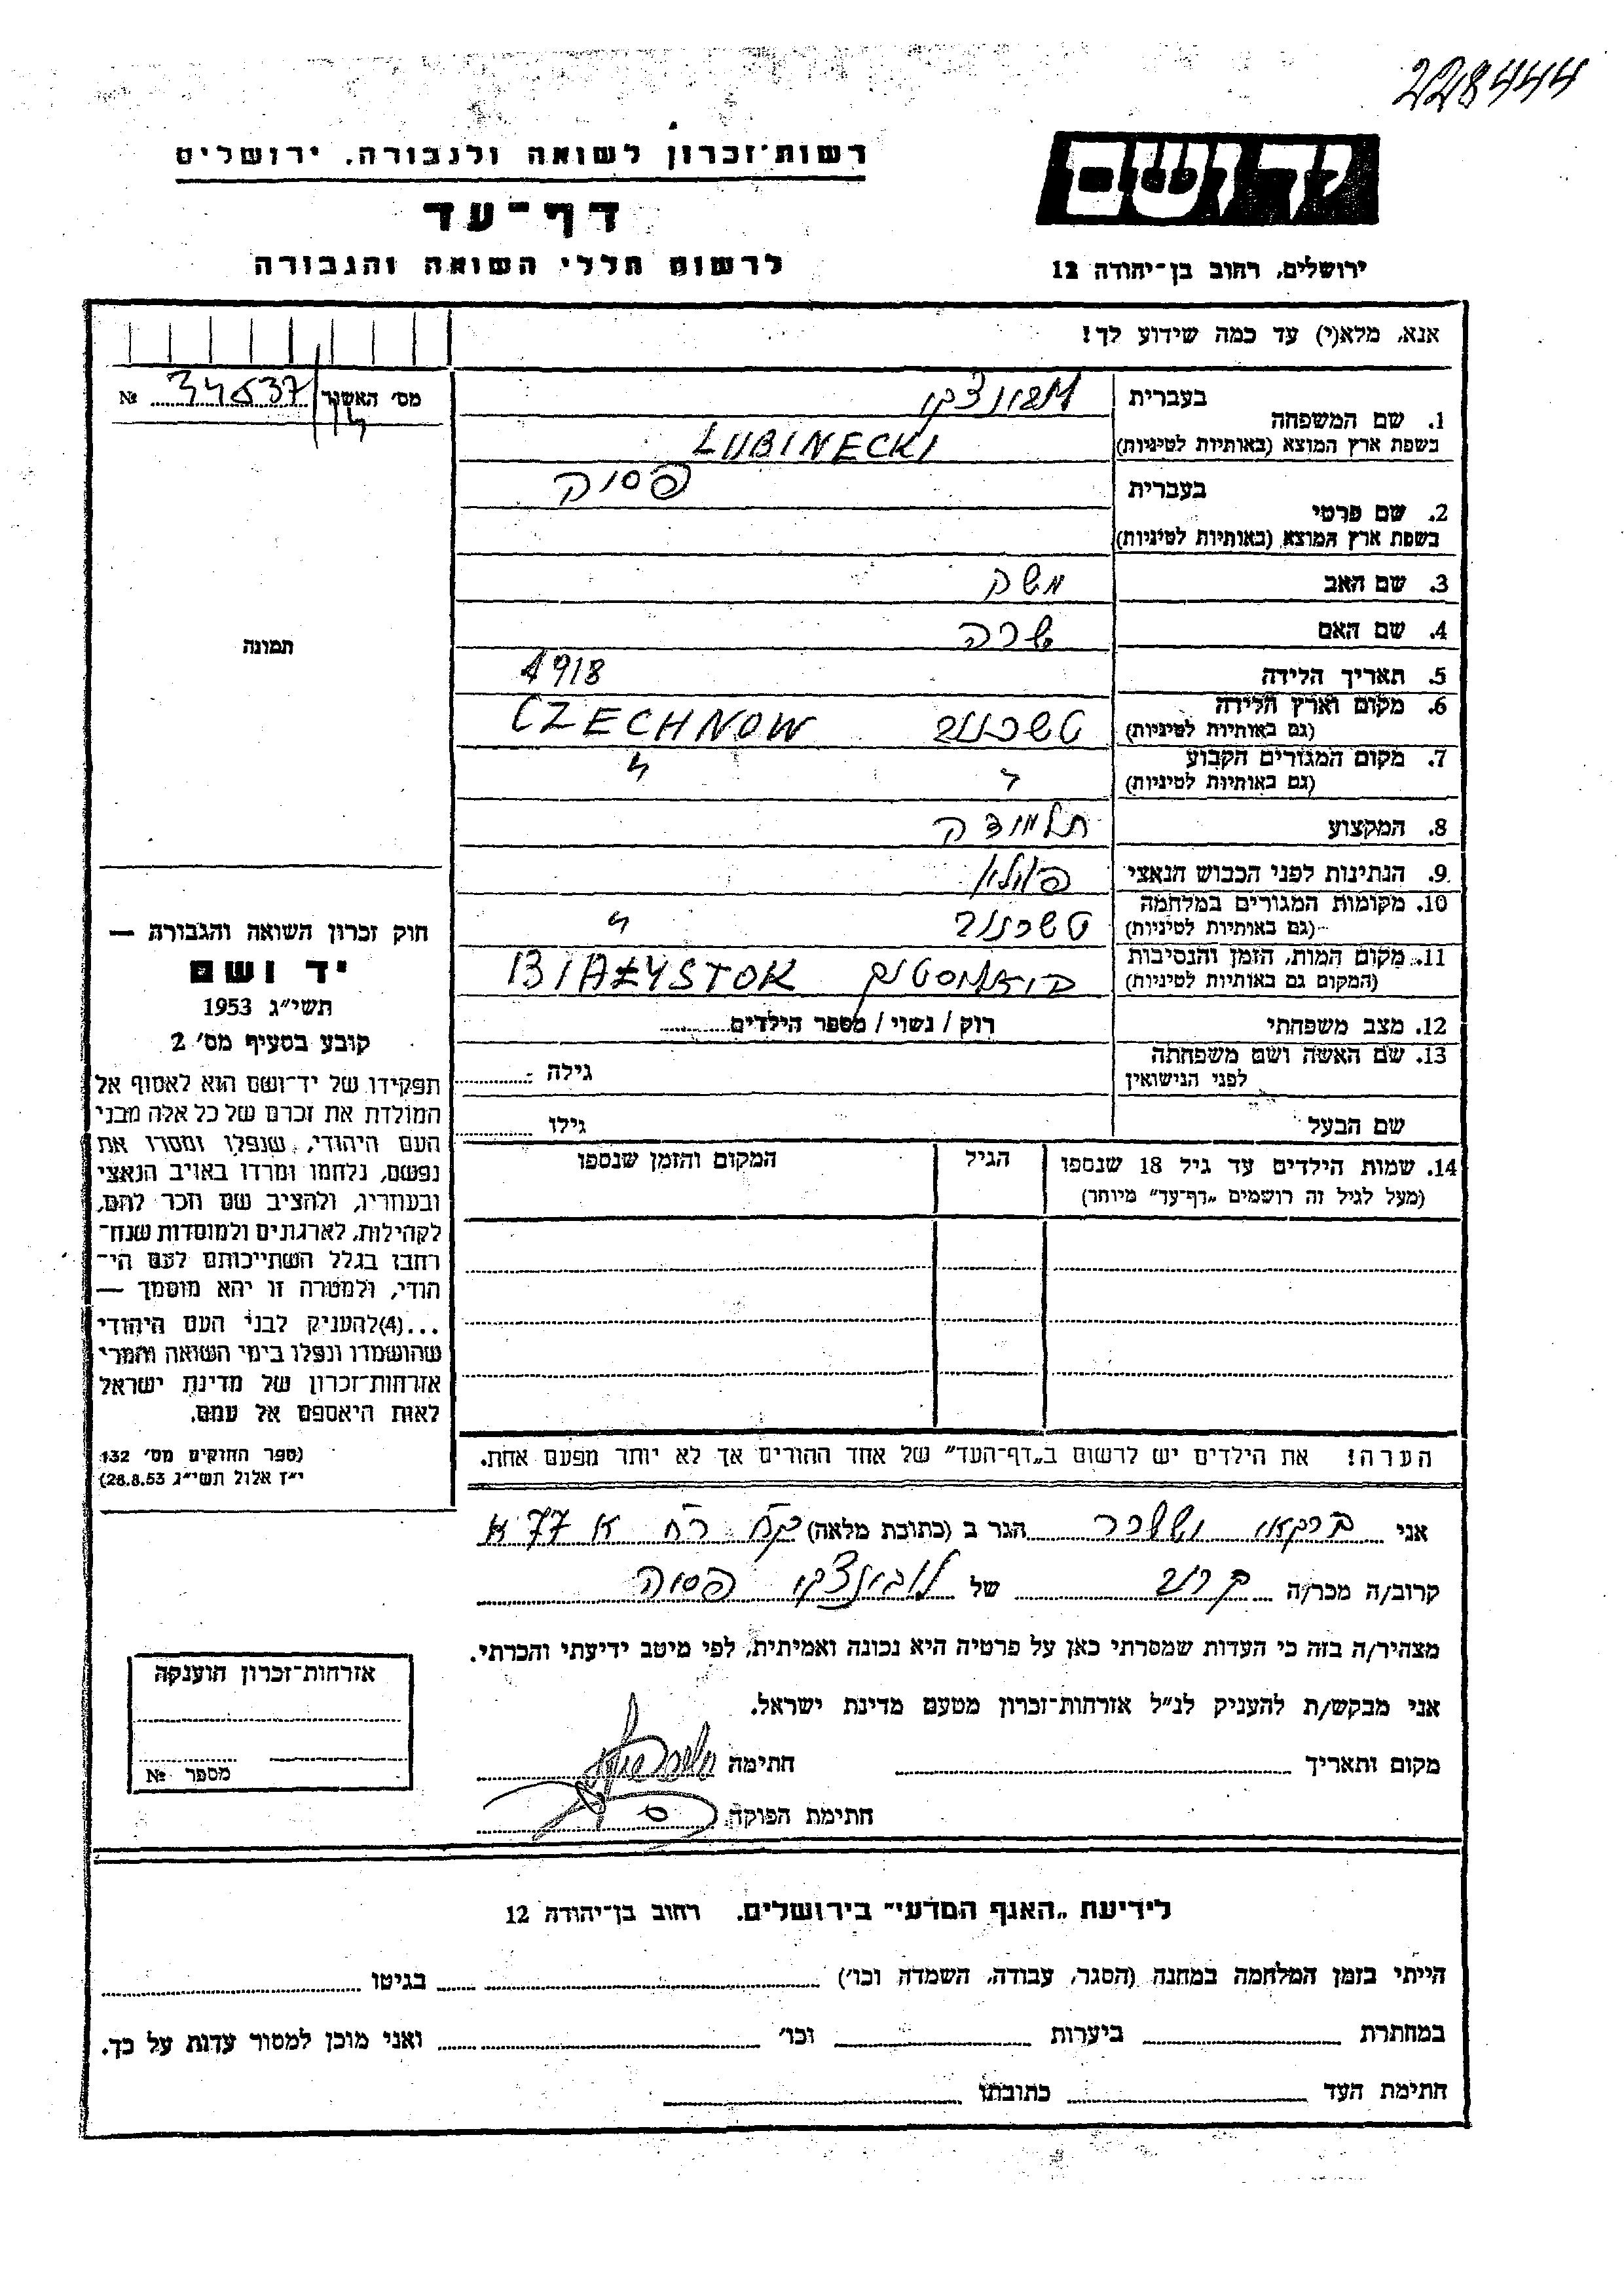 228444
רשות־זכרון לשואה ולגבורה. ירושלים
דף־עד
לרשום חללי השואה והגבורה
יד ושם
ירושלים, רחוב בן־יהודה 12
אנא, מלא(י) עד כמה שידוע לך!
מס׳ האשנר 34537 №
1. שם המשפחה
בעברית
בשפת ארץ המוצא (באותיות לטיניות) LUBINECKI
2. שם פרטי
בעברית פסיה
בשפת ארץ המוצא (באותיות לטיניות)
3. שם האב משה
4. שם האם שרה
5. תאריך הלידה 1918
6. מקום וארץ הלידה
(גם באותיות לטיניות) טשכנוב CZECHNOW
7. מקום המגורים הקבוע
(גם באותיות לטיניות) " "
8. המקצוע תלמידה
9. הנתינות לפני הכבוש הנאצי פולין
10. מקומות המגורים במלחמה
(גם באותיות לטיניות) טשכנוב "
11. מקום המות, הזמן והנסיבות
(המקום גם באותיות לטיניות) BIAŁYSTOK
12. מצב משפחתי רוק / נשוי / מספר הילדים
13. שם האשה ושם משפחתה
לפני הנישואין גילה
שם הבעל גילו
14. שמות הילדים עד גיל 18 שנספו הגיל המקום והזמן שנספו
(מעל לגיל זה רושמים „דף־עד” מיוחר)
הערה! את הילדים יש לרשום ב„דף־העד” של אחד ההורים אך לא יותר מפעם אחת.
תמונה
חוק זכרון השואה והגבורה —
יד ושם
תשי״ג 1953
קובע בסעיף מס׳ 2
תפקידו של יד־ושם הוא לאסוף אל
המולדת את זכרם של כל אלה מבני
העם היהודי, שנפלו ומסרו את
נפשם, נלחמו ומרדו באויב הנאצי
ובעוזריו, ולהציב שם וזכר להם,
לקהילות, לארגונים ולמוסדות שנח־
רבו בגלל השתייכותם לעם הי־
הודי, ולמטרה זו יהא מוסמך —
...(4)להעניק לבני העם היהודי
שהושמדו ונפלו בימי השואה והמרי
אזרחות־זכרון של מדינת ישראל
לאות היאספם אל עמם.
(ספר החוקים מס׳ 132
י״ז אלול תשי״ג 28.8.53)
אני ברקאי הגר ב (כתובת מלאה)
קרוב/ה מכר/ה קרוב של לובינצקי פסיה
מצהיר/ה בזה כי העדות שמסרתי כאן על פרטיה היא נכונה ואמיתית, לפי מיטב ידיעתי והכרתי.
אני מבקש/ת להעניק לנ״ל אזרחות־זכרון מטעם מדינת ישראל.
מקום ותאריך חתימה
חתימת הפוקד
אזרחות־זכרון הוענקה
מספר №
לידיעת „האגף המדעי” בירושלים. רחוב בן־יהודה 12
הייתי בזמן המלחמה במחנה (הסגר, עבודה, השמדה וכו׳) בגיטו
במחתרת ביערות וכו׳ ואני מוכן למסור עדות על כך.
חתימת העד כתובתו